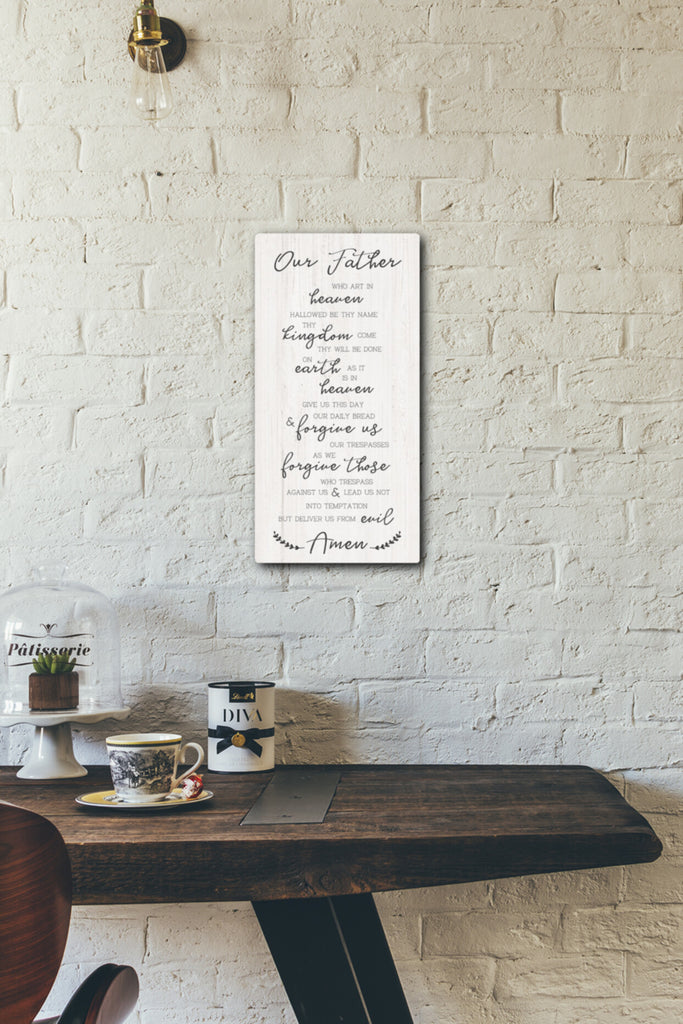 Our Father
WHO ART IN
heaven
HALLOWED BE THY NAME
THY
kingdom COME
THY WILL BE DONE
ON
earth AS IT
IS IN
heaven
GIVE US THIS DAY
OUR DAILY BREAD
& forgive us
OUR TRESPASSES
AS WE
forgive those
WHO TRESPASS
AGAINST US & LEAD US NOT
INTO TEMPTATION
BUT DELIVER US FROM evil
Amen
Pâtisserie
Lindt
DIVA